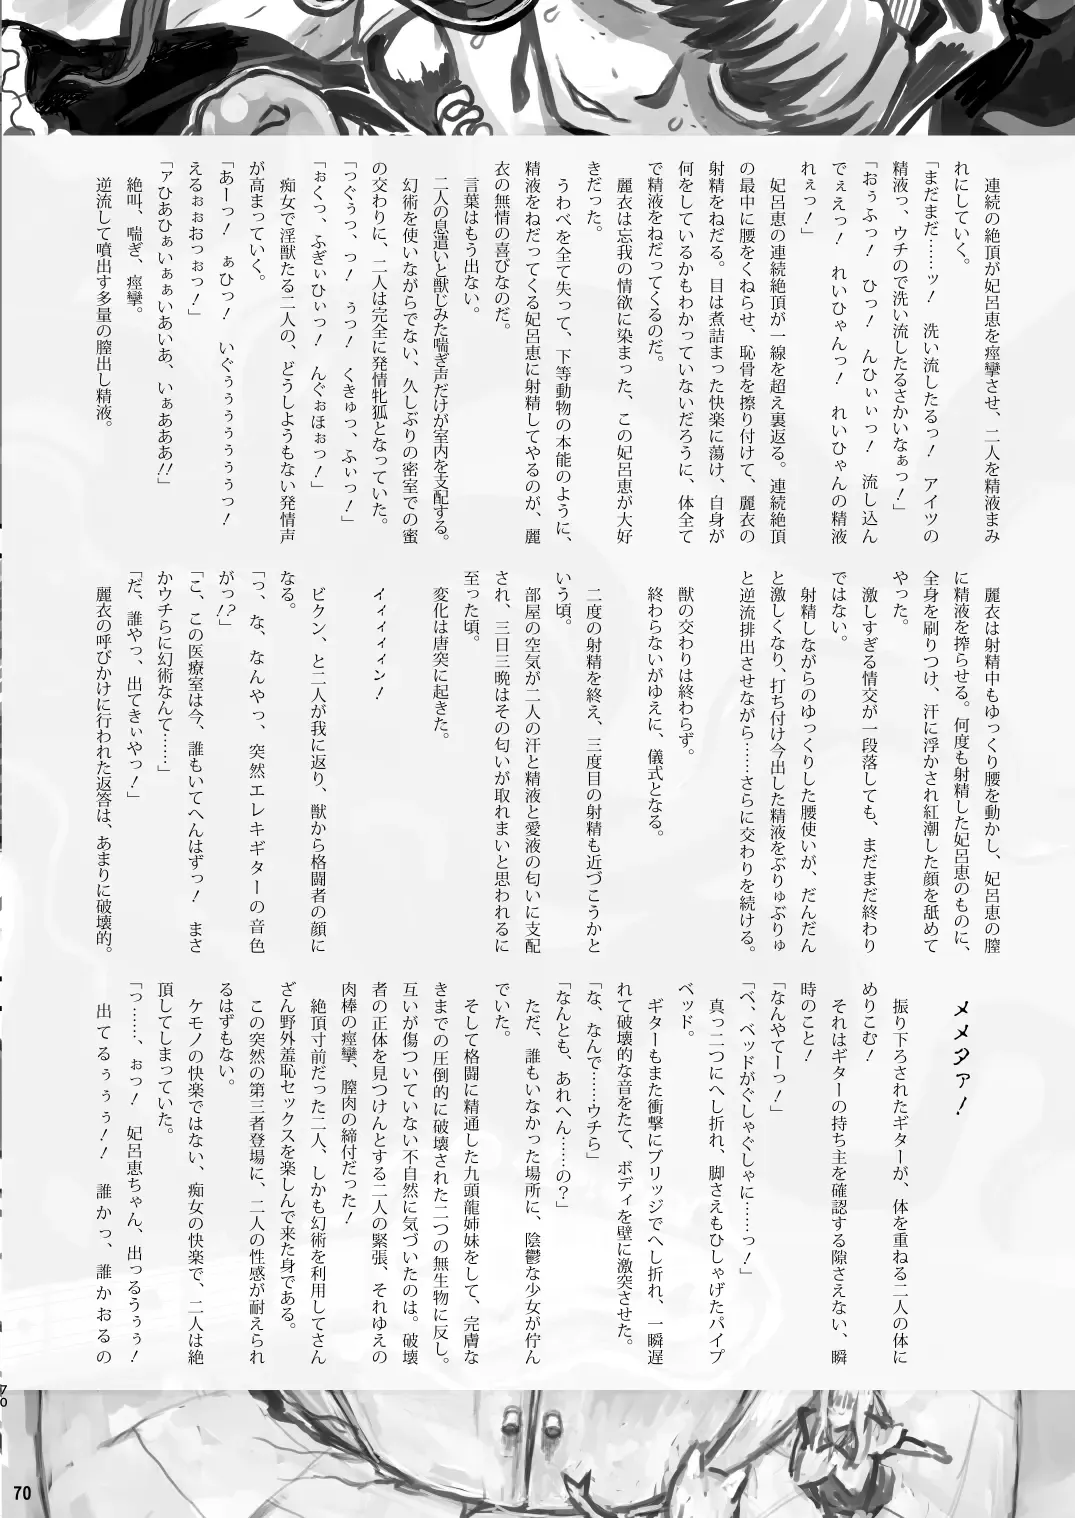 連続の絶頂が妃呂恵を痙攣させ、二人を精液まみ
れにしていく。
「まだまだ……ッ！　洗い流したるっ！　アイツの
精液っ、ウチので洗い流したるさかいなぁっ！」
「おぅふっ！　ひっ！　んひぃぃっ！　流し込ん
でぇえっ！　れいひゃんっ！　れいひゃんの精液
れぇっ！」
妃呂恵の連続絶頂が一線を超え裏返る。連続絶頂
の最中に腰をくねらせ、恥骨を擦り付けて、麗衣の
射精をねだる。目は煮詰まった快楽に蕩け、自身が
何をしているかもわかっていないだろうに、体全て
で精液をねだってくるのだ。
麗衣は忘我の情欲に染まった、この妃呂恵が大好
きだった。
うわべを全て失って、下等動物の本能のように、
精液をねだってくる妃呂恵に射精してやるのが、麗
衣の無情の喜びなのだ。
言葉はもう出ない。
二人の息遣いと獣じみた喘ぎ声だけが室内を支配する。
幻術を使いながらでない、久しぶりの密室での蜜
の交わりに、二人は完全に発情牝狐となっていた。
「つぐぅっ、っ！　ぅっ！　くきゅっ、ふぃっ！」
「ぉくっ、ふぎぃひぃっ！　んぐぉほぉっ！」
痴女で淫獣たる二人の、どうしようもない発情声
が高まっていく。
「あーっ！　ぁひっ！　いぐぅぅぅぅぅぅぅっ！
えるぉぉおっぉっ！」
「ァひあひぁいぁぁいあいあ、いぁあああ!!」
絶叫、喘ぎ、痙攣。
逆流して噴出す多量の膣出し精液。
麗衣は射精中もゆっくり腰を動かし、妃呂恵の膣
に精液を搾らせる。何度も射精した妃呂恵のものに、
全身を刷りつけ、汗に浮かされ紅潮した顔を舐めて
やった。
激しすぎる情交が一段落しても、まだまだ終わり
ではない。
射精しながらのゆっくりした腰使いが、だんだん
と激しくなり、打ち付け今出した精液をぶりゅぶりゅ
と逆流排出させながら……さらに交わりを続ける。
獣の交わりは終わらず。
終わらないがゆえに、儀式となる。
二度の射精を終え、三度目の射精も近づこうかと
いう頃。
部屋の空気が二人の汗と精液と愛液の匂いに支配
され、三日三晩はその匂いが取れまいと思われるに
至った頃。
変化は唐突に起きた。
ィィィィィン！
ビクン、と二人が我に返り、獣から格闘者の顔に
なる。
「っ、な、なんやっ、突然エレキギターの音色
がっ!?」
「こ、この医療室は今、誰もいてへんはずっ！　まさ
かウチらに幻術なんて……」
「だ、誰やっ、出てきぃやっ！」
麗衣の呼びかけに行われた返答は、あまりに破壊的。
メメタァ！
振り下ろされたギターが、体を重ねる二人の体に
めりこむ！
それはギターの持ち主を確認する隙さえない、瞬
時のこと！
「なんやてーっ！」
「べ、ベッドがぐしゃぐしゃに……っ！」
真っ二つにへし折れ、脚さえもひしゃげたパイプ
ベッド。
ギターもまた衝撃にブリッジでへし折れ、一瞬遅
れて破壊的な音をたて、ボディを壁に激突させた。
「な、なんで……ウチら」
「なんとも、あれへん……の？」
ただ、誰もいなかった場所に、陰鬱な少女が佇ん
でいた。
そして格闘に精通した九頭龍姉妹をして、完膚な
きまでの圧倒的に破壊された二つの無生物に反し。
互いが傷ついていない不自然に気づいたのは。破壊
者の正体を見つけんとする二人の緊張、それゆえの
肉棒の痙攣、膣肉の締付だった！
絶頂寸前だった二人、しかも幻術を利用してさん
ざん野外羞恥セックスを楽しんで来た身である。
この突然の第三者登場に、二人の性感が耐えられ
るはずもない。
ケモノの快楽ではない、痴女の快楽で、二人は絶
頂してしまっていた。
「っ……、ぉっ！　妃呂恵ちゃん、出っるうぅぅ！
出てるぅぅぅ！！　誰かっ、誰かおるの
70
70